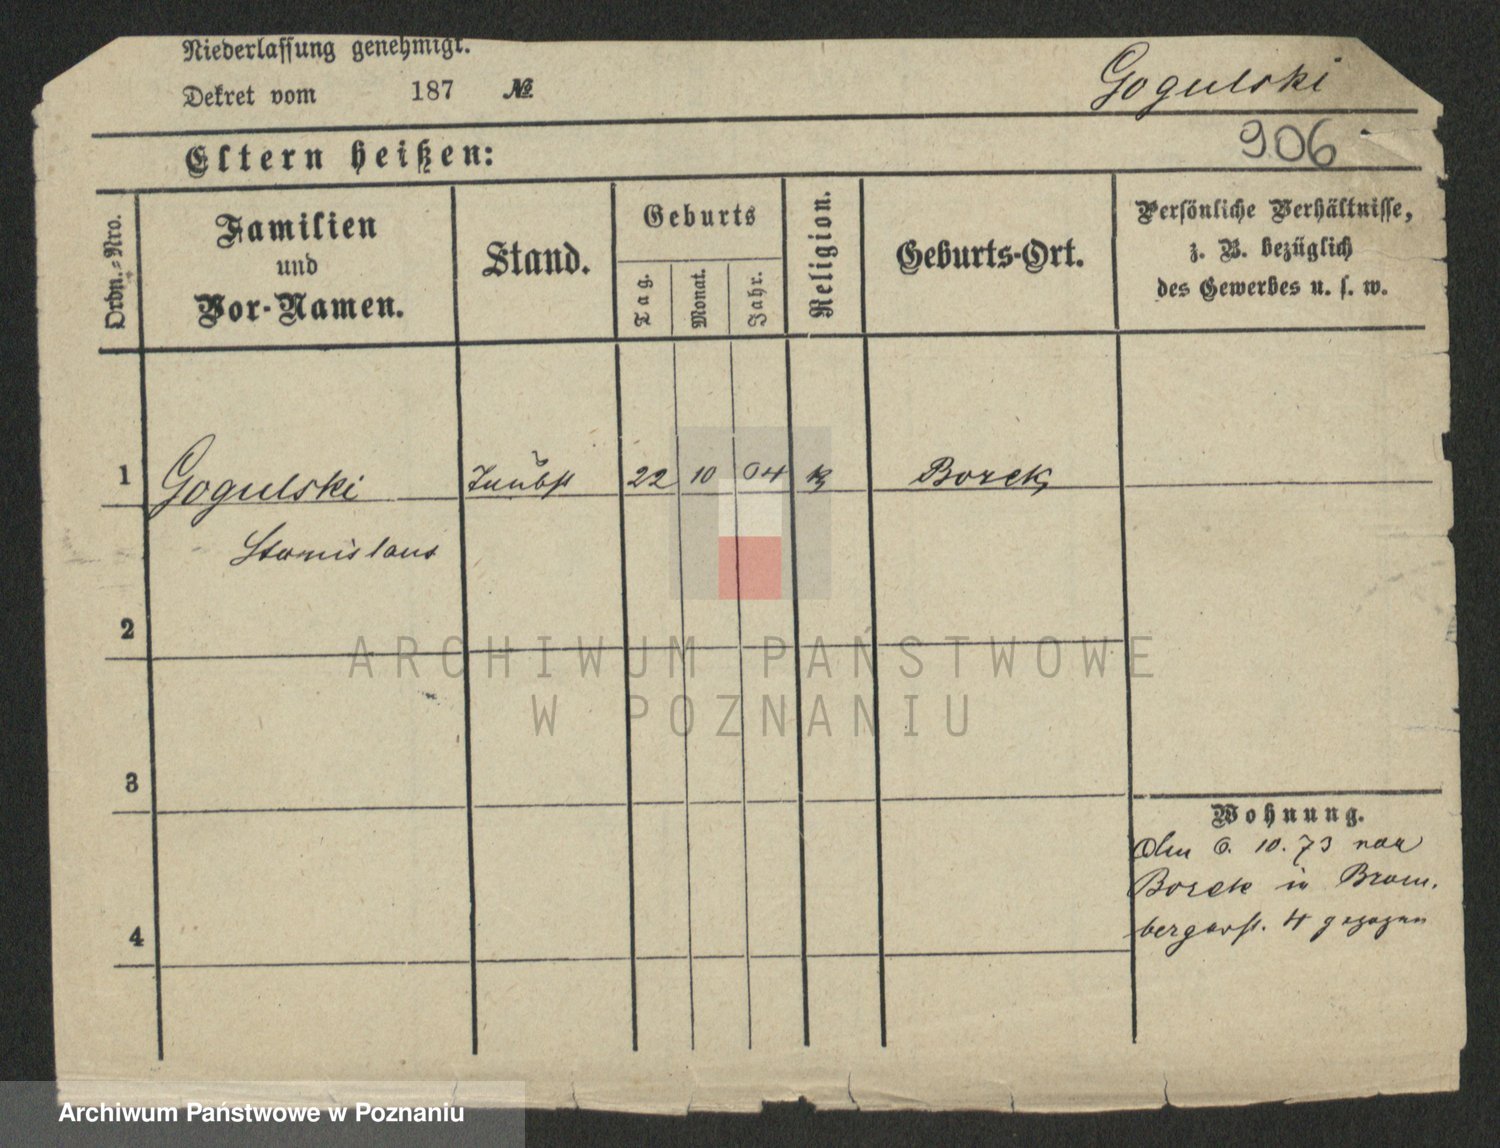 Niederlassung genehmigt.
Dekret vom 187 №
Gogulski
906
Eltern heißen:
Ordn.-Nro.
Familien
und
Vor-Namen.
Stand.
Geburts
Tag.
Monat.
Jahr.
Religion.
Geburts-Ort.
Persönliche Verhältnisse,
z. B. bezüglich
des Gewerbes u. s. w.
1 Gogulski 22 10 04 k Borek
Stanislaus
2
3
4
Wohnung.
6. 10. 73 von
Borek in Brom-
bergerst. 4 gezogen
ARCHIWUM PAŃSTWOWE
W POZNANIU
Archiwum Państwowe w Poznaniu